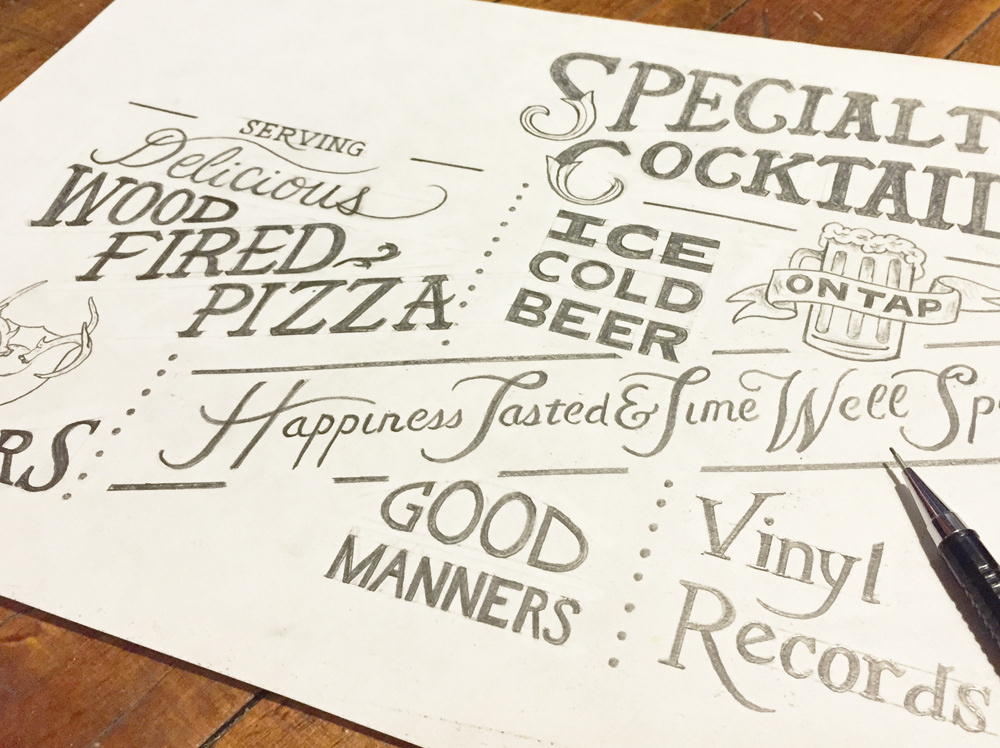 SERVING
Delicious
WOOD
FIRED
PIZZA
SPECIALT
COCKTAIL
ICE
COLD
BEER
ON TAP
RS
Happiness Tasted & Time Well Sp
GOOD
MANNERS
Vinyl
Records